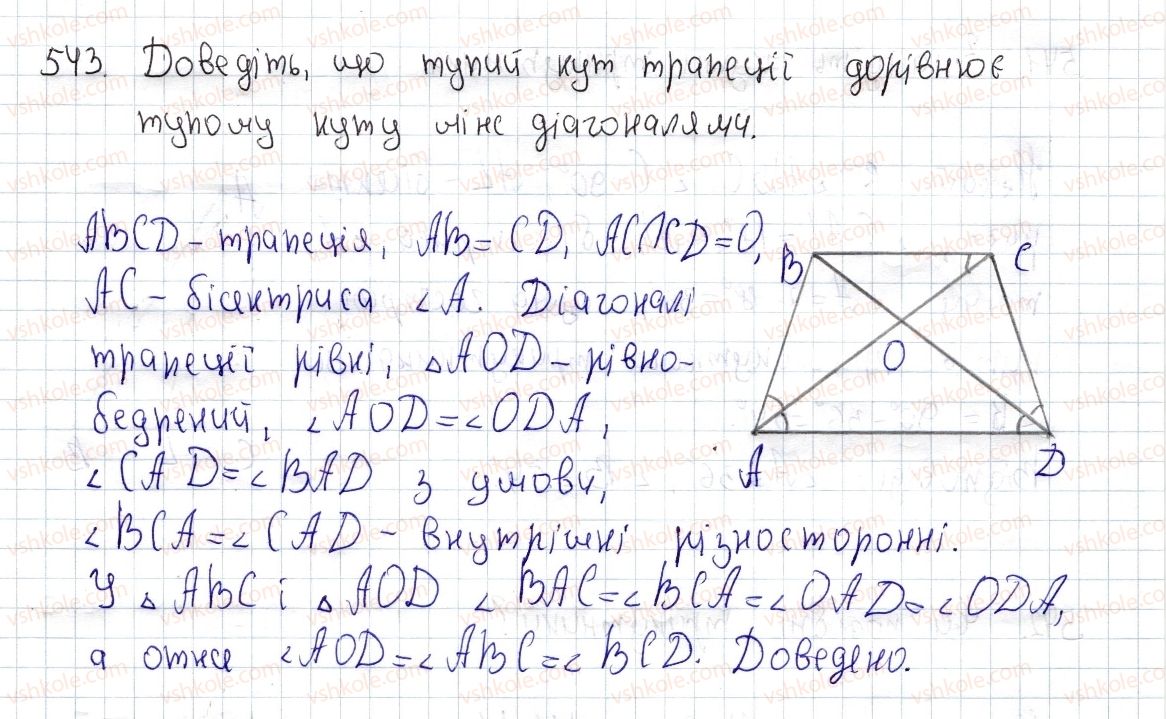 543. Доведіть, що тупий кут трапеції дорівнює
тупому куту між діагоналями.
ABCD - трапеція, AB = CD, AC∩CD = O,
AC - бісектриса ∠A. Діагоналі
трапеції рівні, △AOD - рівно-
бедрений, ∠AOD = ∠ODA,
∠CAD = ∠BAD з умови,
∠BCA = ∠CAD - внутрішні різносторонні.
У △ABC і △AOD ∠BAC = ∠BCA = ∠OAD = ∠ODA,
а отже ∠AOD = ∠ABC = ∠BCD. Доведено.
B
C
O
A
D
vshkole.com